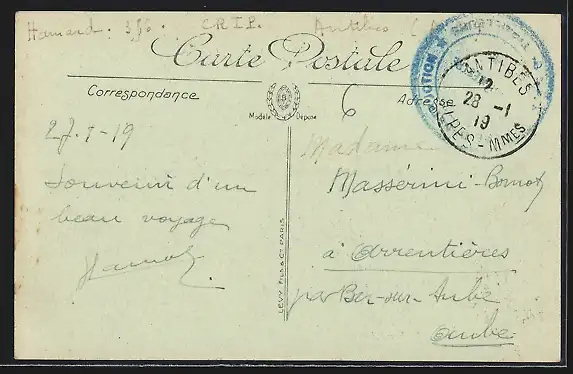 Hamard: 356. C.R.I.P. Antibes
Carte Postale
Correspondance
Adresse
Modèle Déposé
ANTIBES
12
28 -1
19
ALPES-MMES
6
27-1-19
Souvenir d'un
beau voyage
Madame
Massérini-Bornot
à Arrentières
par Bar-sur-Aube
Aube
LEVY FILS & Cie PARIS